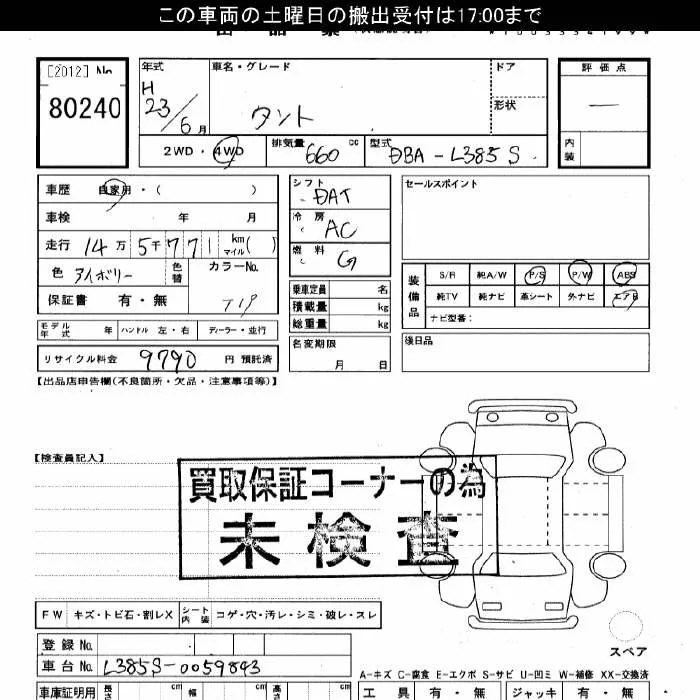 この車両の土曜日の搬出受付は17:00まで
[2012] No 80240
年式 H 23/6月
車名・グレード タント
ドア
形状
評価点 —
内装
2WD・4WD
排気量 660 cc
型式 DBA-L385S
車歴 自家用・( )
車検 年 月
走行 14万5千771 km マイル( )
色 アイボリー 色替
カラーNo. T19
保証書 有・無
シフト DAT
冷房 AC
燃料 G
乗車定員 名
積載量 kg
総重量 kg
名変期限 月 日
セールスポイント
装備品 S/R 純A/W P/S P/W ABS
純TV 純ナビ 革シート 外ナビ エアB
ナビ型番:
後日品
モデル年式 年 ハンドル 左・右 ディーラー・並行
リサイクル料金 9790 円 預託済
【出品店申告欄(不良箇所・欠品・注意事項等)】
【検査員記入】
買取保証コーナーの為
未検査
FW キズ・トビ石・割レX シート内装 コゲ・穴・汚レ・シミ・破レ・スレ
スペア
登録 No.
車台 No. L385S-0059843
A-キズ C-腐食 E-エクボ S-サビ U-凹ミ W-補修 XX-交換済
車庫証明用 長さ cm 幅 cm 高さ cm
工具 有・無 ジャッキ 有・無